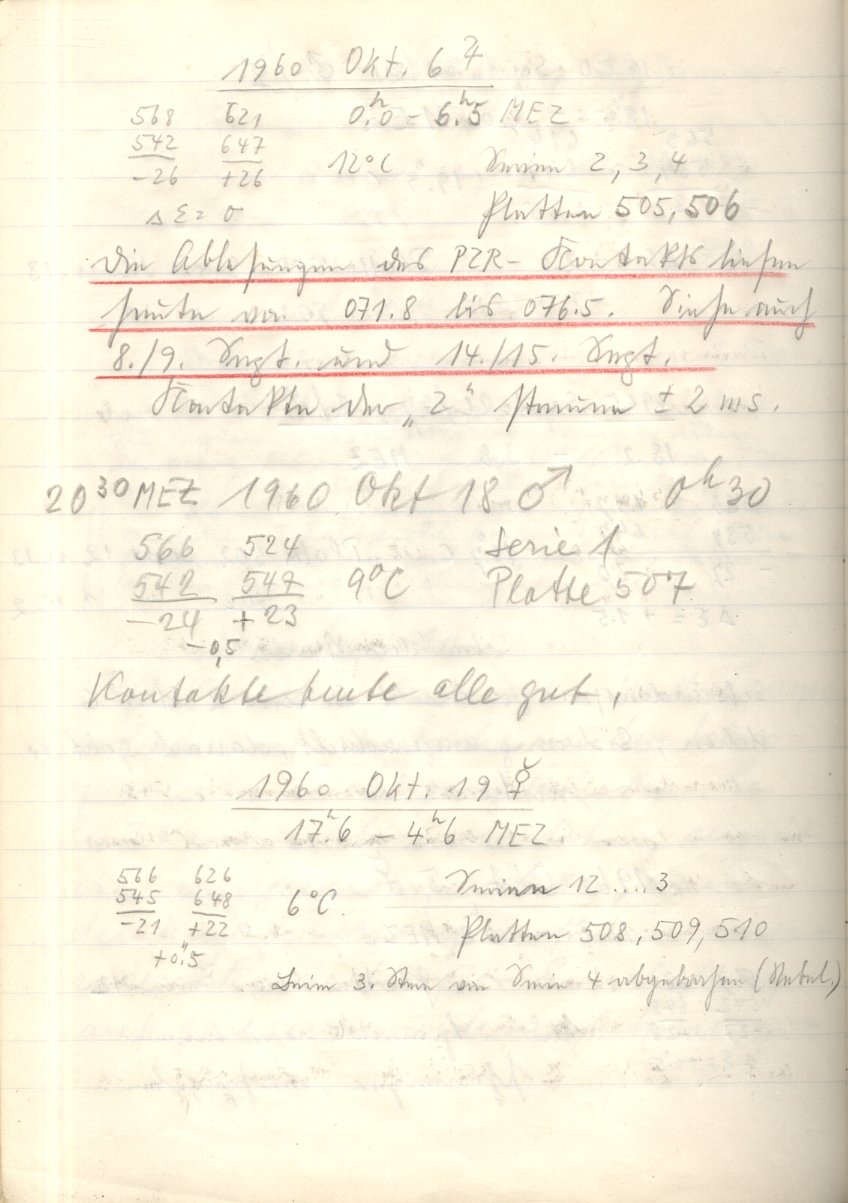 1960 Okt. 6 ♃
568 621 0.ʰ0 – 6.ʰ5 MEZ
542 647 12°C Serien 2, 3, 4
-26 +26
Δ Σ = 0 Platten 505, 506
Die Ablesungen des PZR-Kontakts liefen
heute von 071.8 bis 076.5. Siehe auch
8./9. Sept. und 14./15. Sept.
Kontakte der „2“ ± 2 ms.
20³⁰ MEZ 1960 Okt 18 ♂ 0ʰ30
566 524 Serie 1
542 547 9°C Platte 507
-24 +23
-0,5
Kontakte heute alle gut.
1960 Okt. 19 ☿
17.ʰ6 – 4.ʰ6 MEZ
566 626 Serien 12....3
545 648 6°C.
-21 +22 Platten 508, 509, 510
+0."5
Beim 3. Stern von Serie 4 abgebrochen (Nebel.)